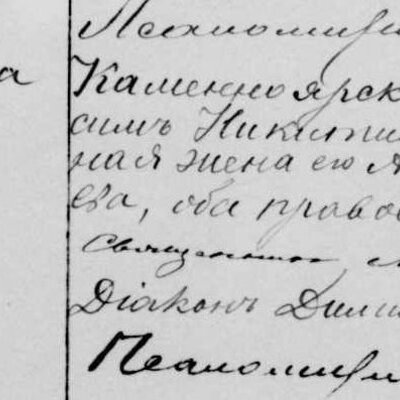 Псаломщи
а
Каменноярск
симъ Никити
ная жена его А
ева, оба право
Священникъ
Діаконъ Дими
Псаломщи